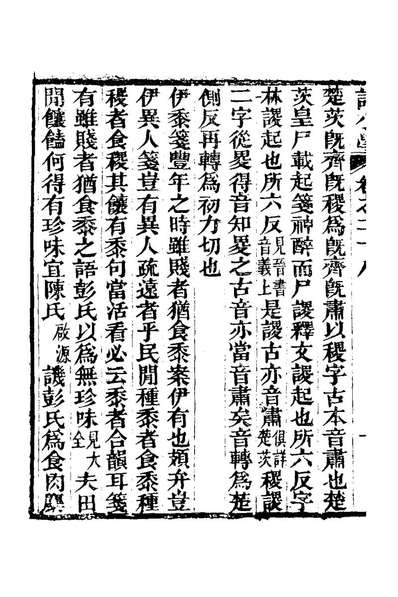 詩小學 卷之二十八
楚茨旣齊旣稷爲旣齊旣肅以稷字古本音肅也楚
茨皇尸載起箋神醉而尸謖釋文謖起也所六反字
林謖起也所六反見晉書音義上是謖古亦音肅俱詳楚茨稷謖
二字從畟得音知畟之古音亦當音肅矣音轉爲楚
側反再轉爲初力切也
伊黍箋豐年之時雖賤者猶食黍案伊有也頍弁豈
伊異人箋豈有異人疏遠者乎民閒種黍者食黍種
稷者食稷其饟有黍句當活看必云黍者合韻耳箋
有雖賤者猶食黍之語彭氏以爲無珍味見大全夫田
閒饟饁何得有珍味宜陳氏啟源譏彭氏爲食肉